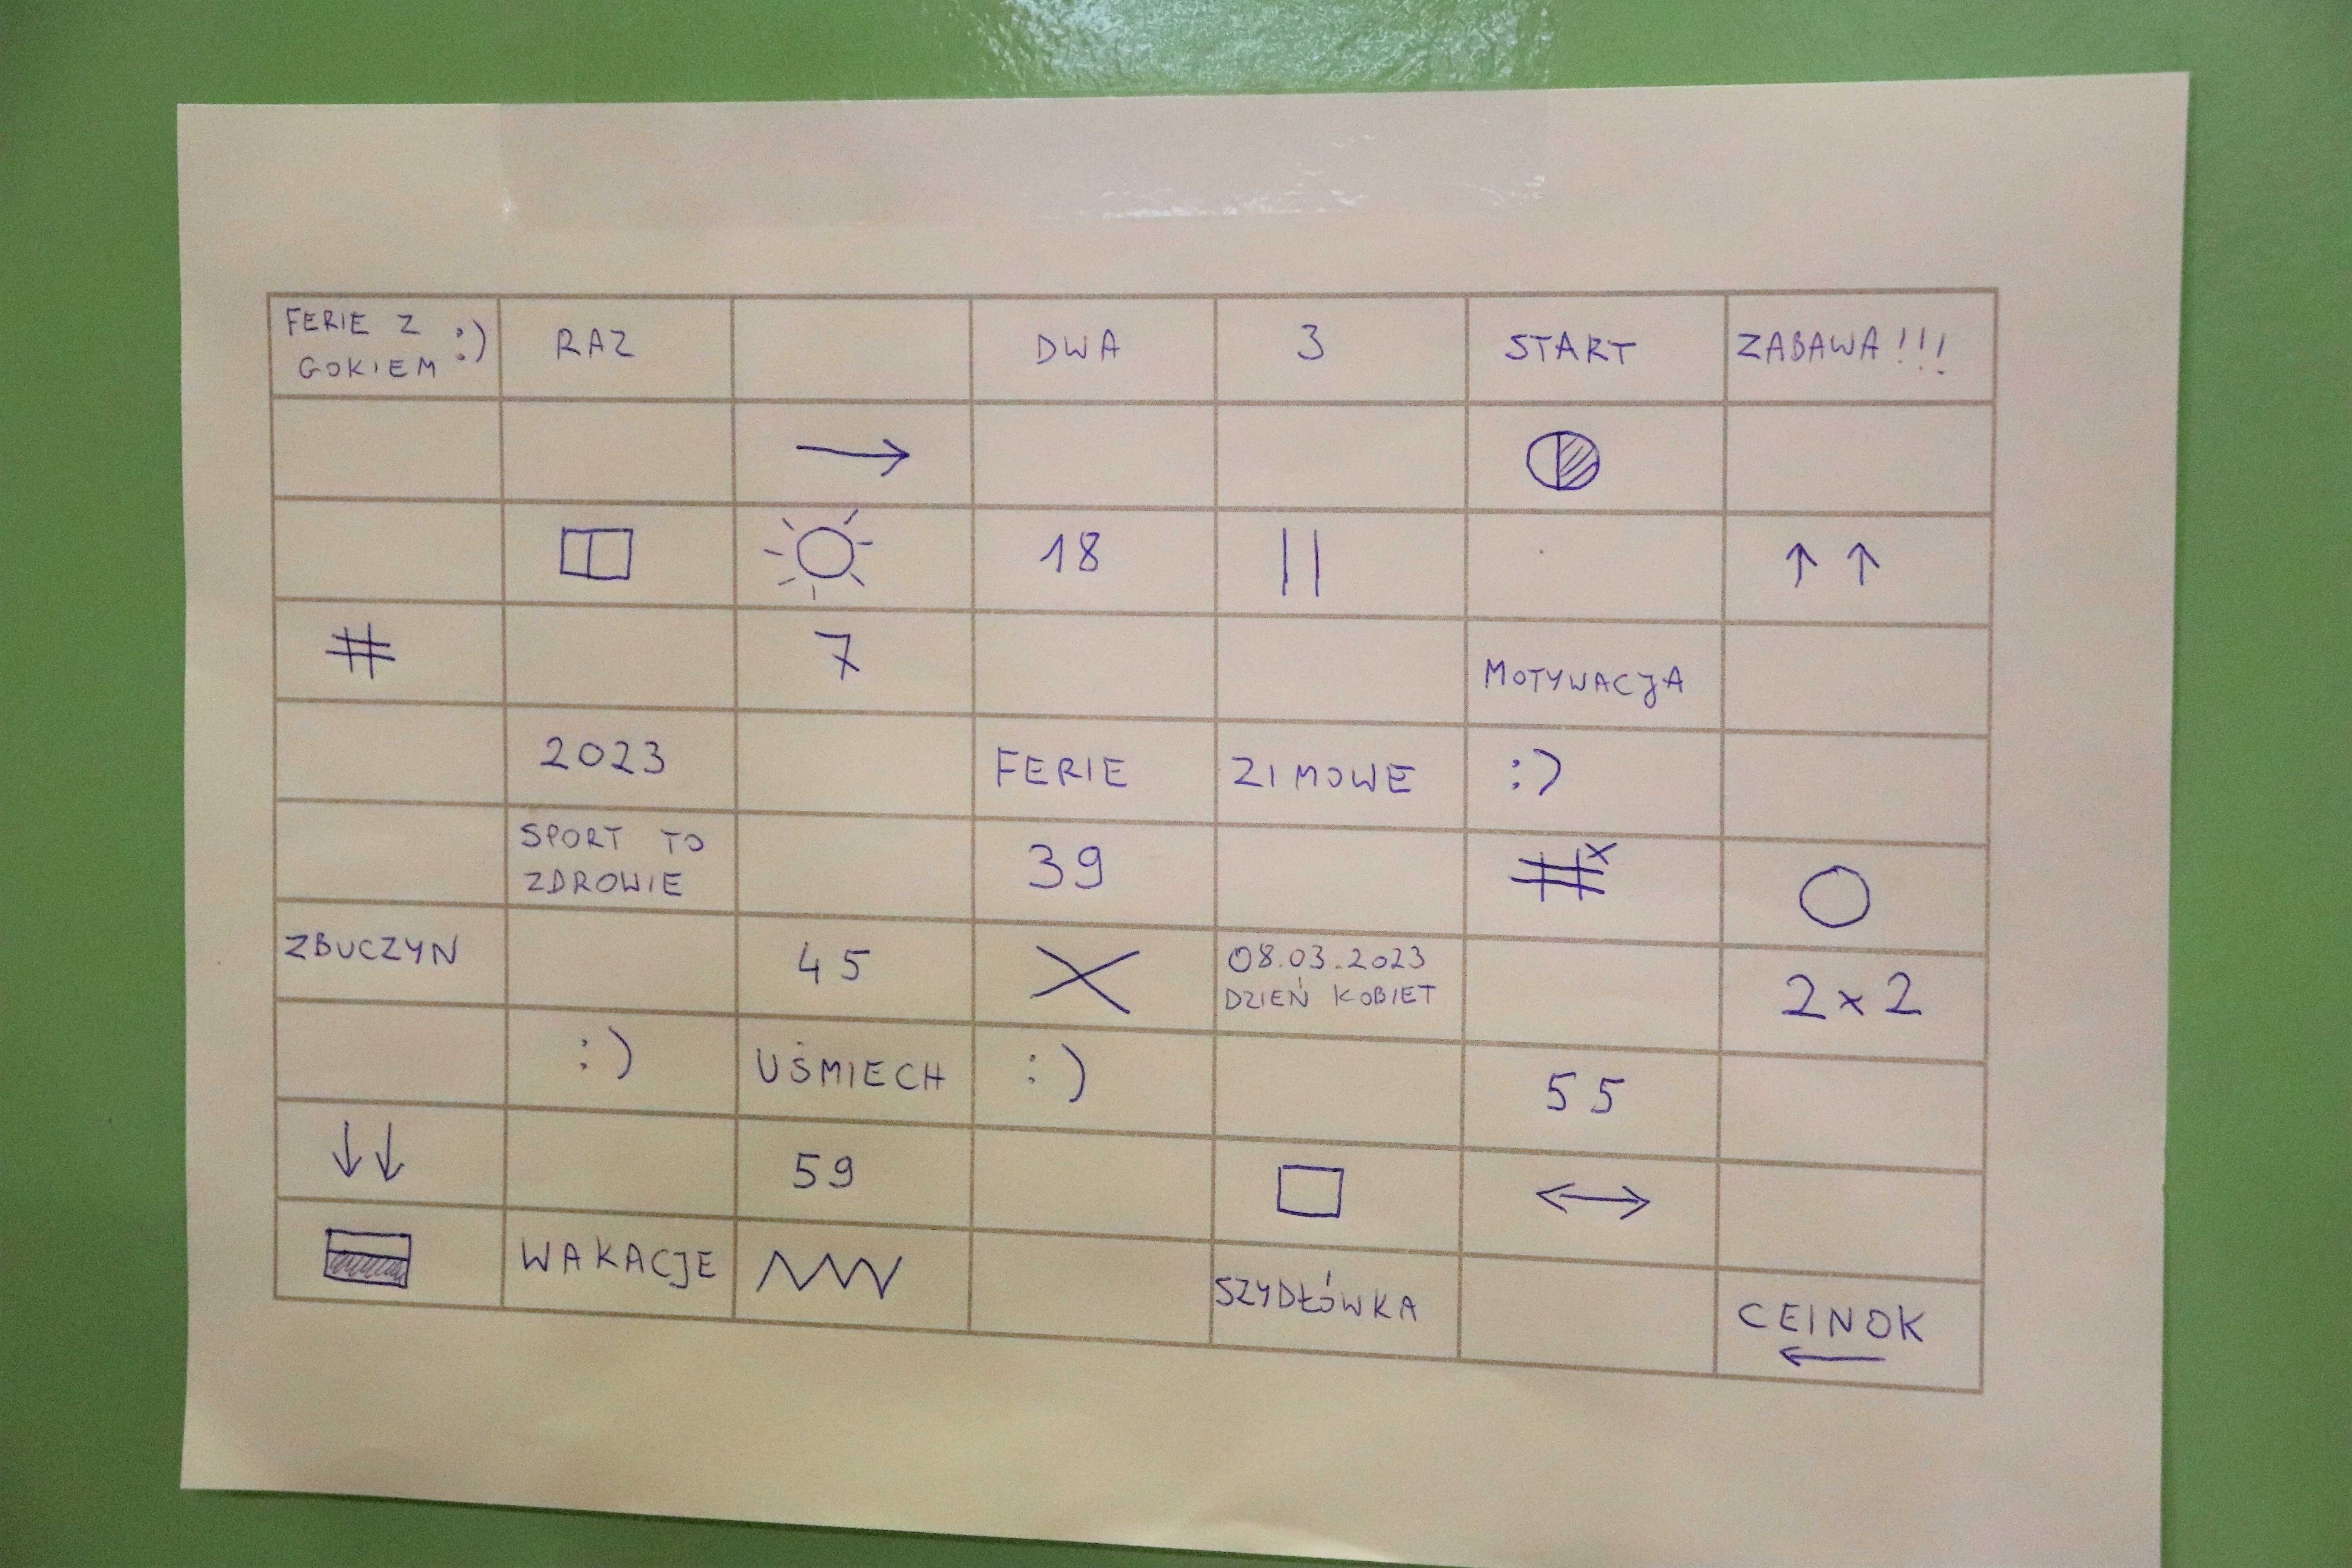 FERIE Z GOKIEM :)
RAZ
DWA
3
START
ZABAWA!!!
→
18
||
↑ ↑
#
7
MOTYWACJA
2023
FERIE
ZIMOWE
:)
SPORT TO
ZDROWIE
39
#x
ZBUCZYN
45
X
08.03.2023
DZIEŃ KOBIET
2x2
:)
UŚMIECH
:)
55
↓↓
59
↔
WAKACJE
SZYDŁÓWKA
CEINOK
←